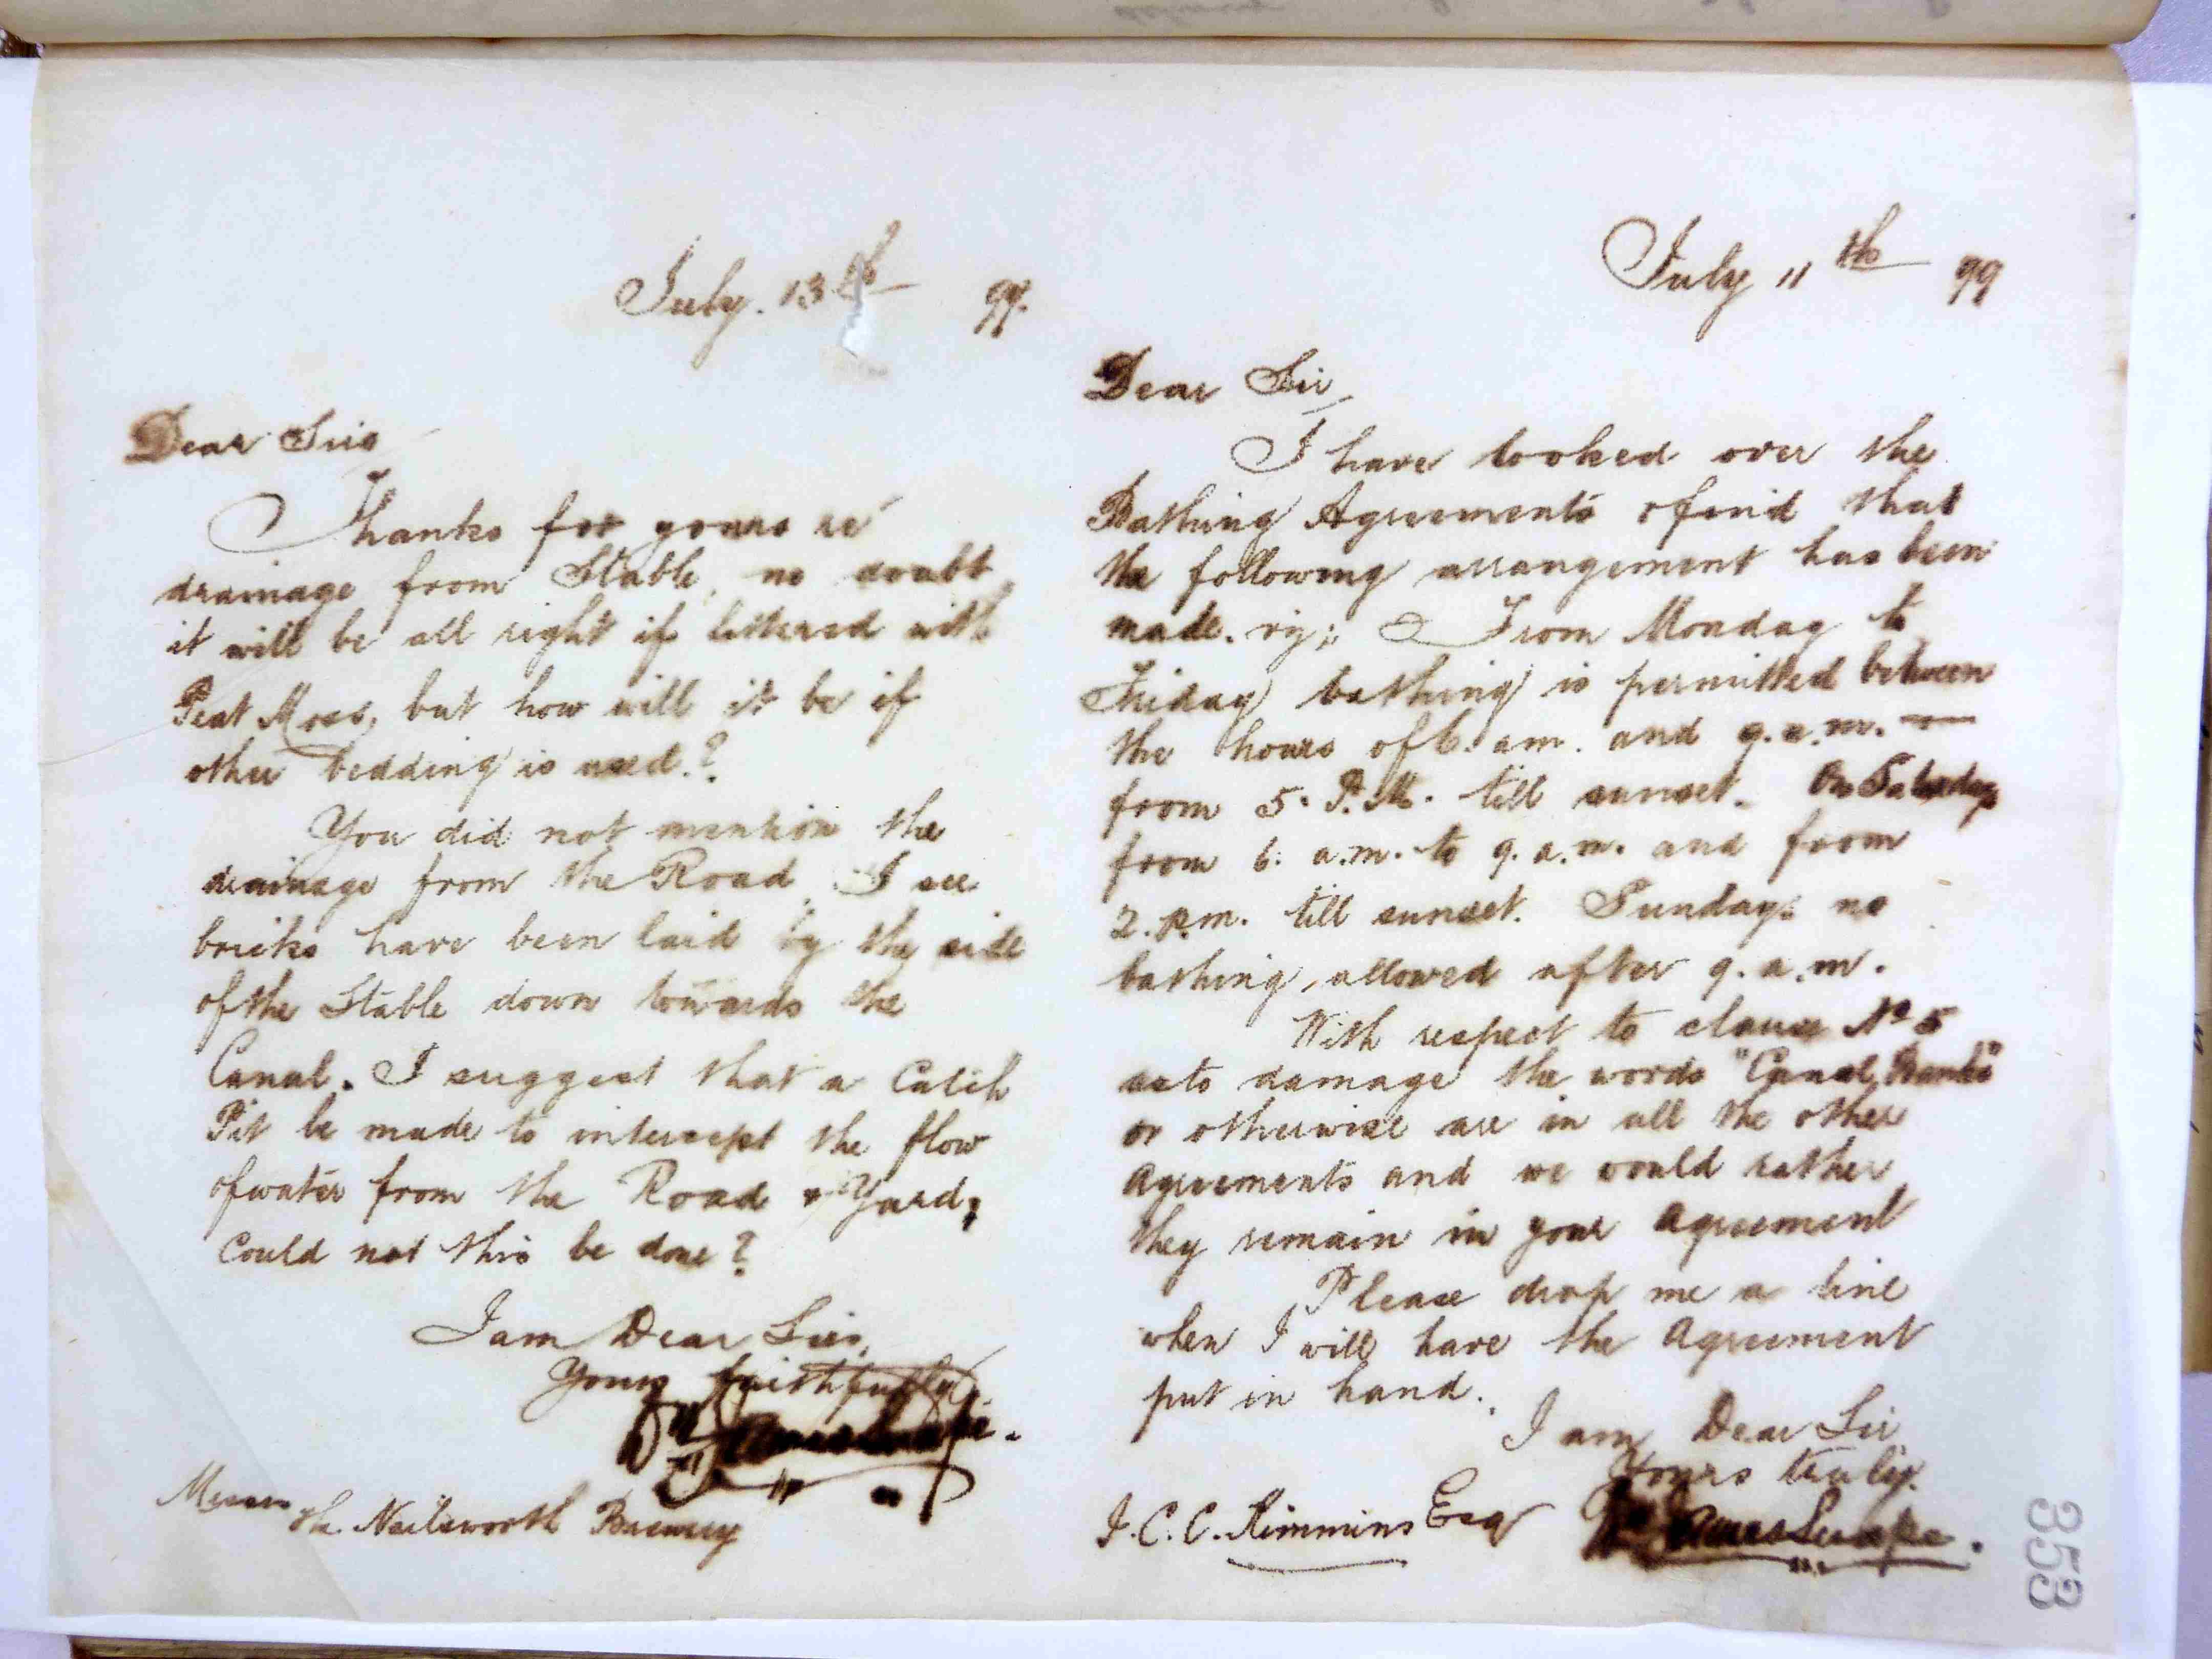 July. 13th 99.
Dear Sirs
Thanks for yours re
drainage from Stable, no doubt
it will be all right if littered with
Peat Moss, but how will it be if
other bedding is used?
You did not mention the
drainage from the Road. I see
bricks have been laid by the side
of the Stable down towards the
Canal. I suggest that a Catch
Pit be made to intercept the flow
of water from the Road & Yard,
Could not this be done?
I am Dear Sirs,
Yours faithfully
Messrs the Nailsworth Brewery
July 11th 99
Dear Sir,
I have looked over the
Bathing Agreements & find that
the following arrangement has been
made. viz; From Monday to
Friday bathing is permitted between
the hours of 6. am. and 9. a.m.
from 5. P.M. till sunset. On Saturdays
from 6. a.m. to 9. a.m. and from
2. p.m. till sunset. Sundays no
bathing allowed after 9. a.m.
With respect to clause No 5
as to damage the words "Canal Banks"
or otherwise are in all the other
Agreements and we would rather
they remain in your Agreement
Please drop me a line
when I will have the Agreement
put in hand.
I am Dear Sir
Yours truly.
J. C. C. Kimmins Esq
353